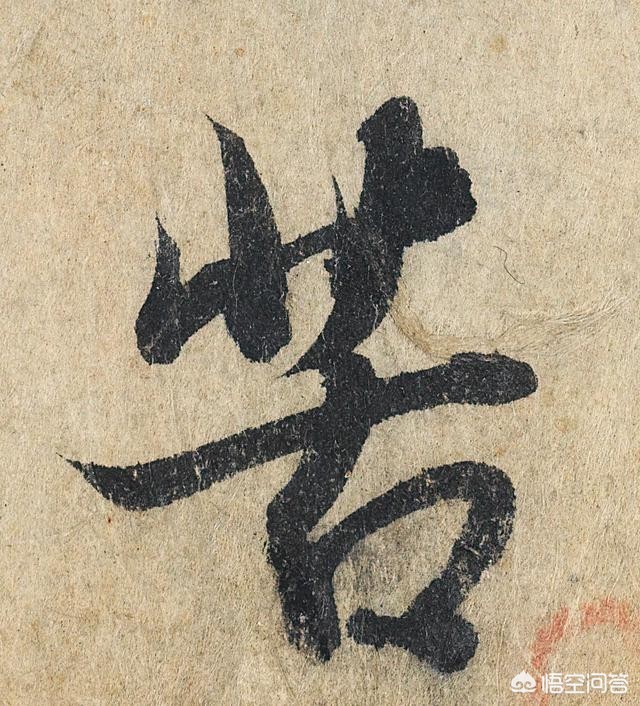 苦
悟空问答